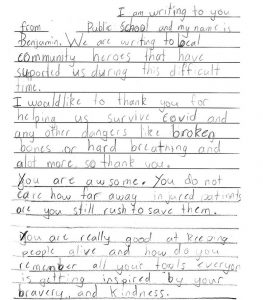 I am writing to you
from Public school and my name is
Benjamin. We are writing to local
community heroes that have
supported us during this difficult
time.
I would like to thank you for
helping us survive covid and
any other dangers like broken
bones or hard breathing and
alot more, so thank you.
You are awsome. You do not
care how far away injured patients
are you still rush to save them.
You are really good at keeping
people alive and how do you
remember all your tools everyone
is getting inspired by your
bravery, and kindness.